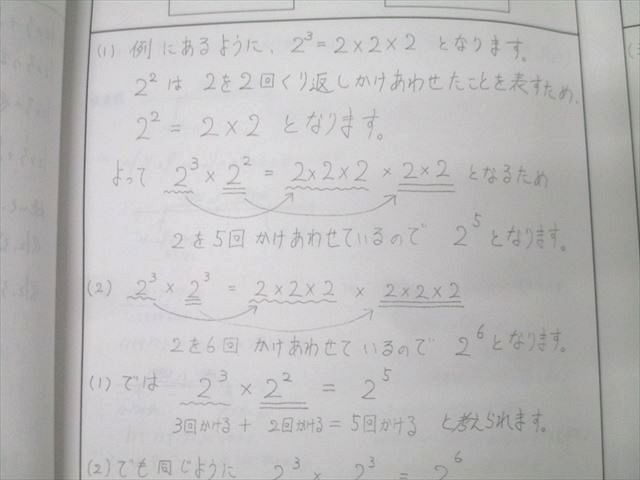 (1) 例にあるように、2³ = 2 × 2 × 2 となります。
2² は 2を2回くり返しかけあわせたことを表すため、
2² = 2 × 2 となります。
よって 2³ × 2² = 2 × 2 × 2 × 2 × 2 となるため
2を5回かけあわせているので 2⁵ となります。
(2) 2³ × 2³ = 2 × 2 × 2 × 2 × 2 × 2
2を6回かけあわせているので 2⁶ となります。
(1)では 2³ × 2² = 2⁵
3回かける + 2回かける = 5回かける と考えられます。
(2)でも同じように 2³ × 2³ = 2⁶